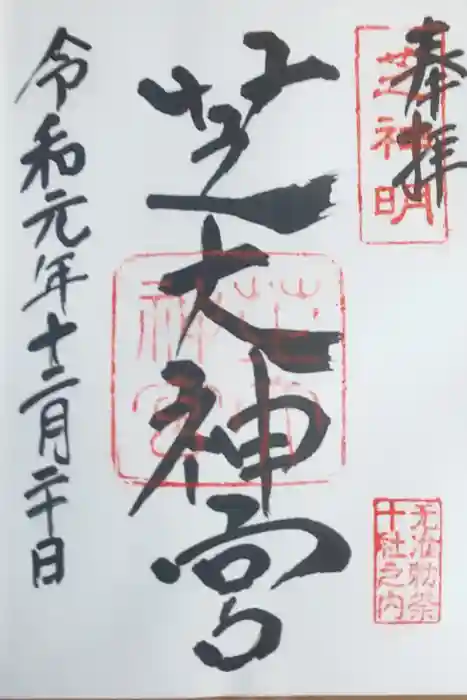 奉拝
芝神明
芝大神宮
元准勅祭
十社之内
令和元年十二月二十日